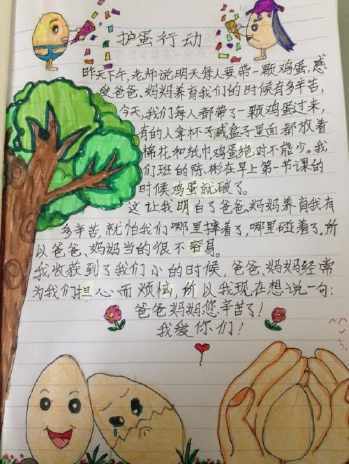 护蛋行动
昨天下午,老师说明天每人要带一颗鸡蛋,感
受爸爸、妈妈养育我们的时候有多辛苦,
今天,我们每人都带了一颗鸡蛋过来,
有的人拿杯子或盒子里面都放着
棉花和纸巾鸡蛋绝对不能少。我
们班的陈彬在早上第一节课的
时候鸡蛋就破了。
这让我明白了爸爸、妈妈养育我有
多辛苦,就怕我们哪里摔着了,哪里碰着了,所
以爸爸、妈妈当的很不容易。
我收获到了我们小的时候,爸爸、妈妈经常
为我们担心而烦恼,所以我现在想说一句:
爸爸妈妈您辛苦了!
我爱你们!